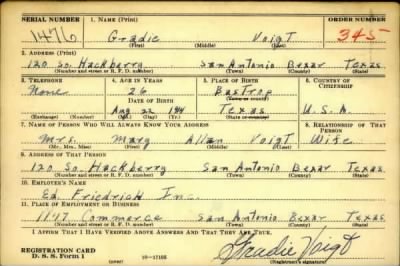 SERIAL NUMBER 1. NAME (Print) ORDER NUMBER
1476 Gradie Voigt 345
(First) (Middle) (Last)
2. ADDRESS (Print)
120 So. Hackberry San Antonio Bexar Texas
(Number and street or R. F. D. number) (Town) (County) (State)
3. TELEPHONE 4. AGE IN YEARS 5. PLACE OF BIRTH 6. COUNTRY OF CITIZENSHIP
None 26 Bastrop
DATE OF BIRTH (Town or county)
Aug 22 Texas U.S.A.
(Exchange) (Number) (Mo.) (Day) (Yr.) (State or country)
7. NAME OF PERSON WHO WILL ALWAYS KNOW YOUR ADDRESS 8. RELATIONSHIP OF THAT PERSON
Mrs. Mary Voigt Wife
(Mr., Mrs., Miss) (First) (Middle) (Last)
9. ADDRESS OF THAT PERSON
120 So. Hackberry San Antonio Bexar Texas
(Number and street or R. F. D. number) (Town) (County) (State)
10. EMPLOYER'S NAME
Ed. Friedrich Inc.
11. PLACE OF EMPLOYMENT OR BUSINESS
1117 Commerce San Antonio Bexar Texas
(Number and street or R. F. D. number) (Town) (County) (State)
I AFFIRM THAT I HAVE VERIFIED ABOVE ANSWERS AND THAT THEY ARE TRUE.
REGISTRATION CARD
D. S. S. Form 1 Gradie Voigt
(Registrant's signature)